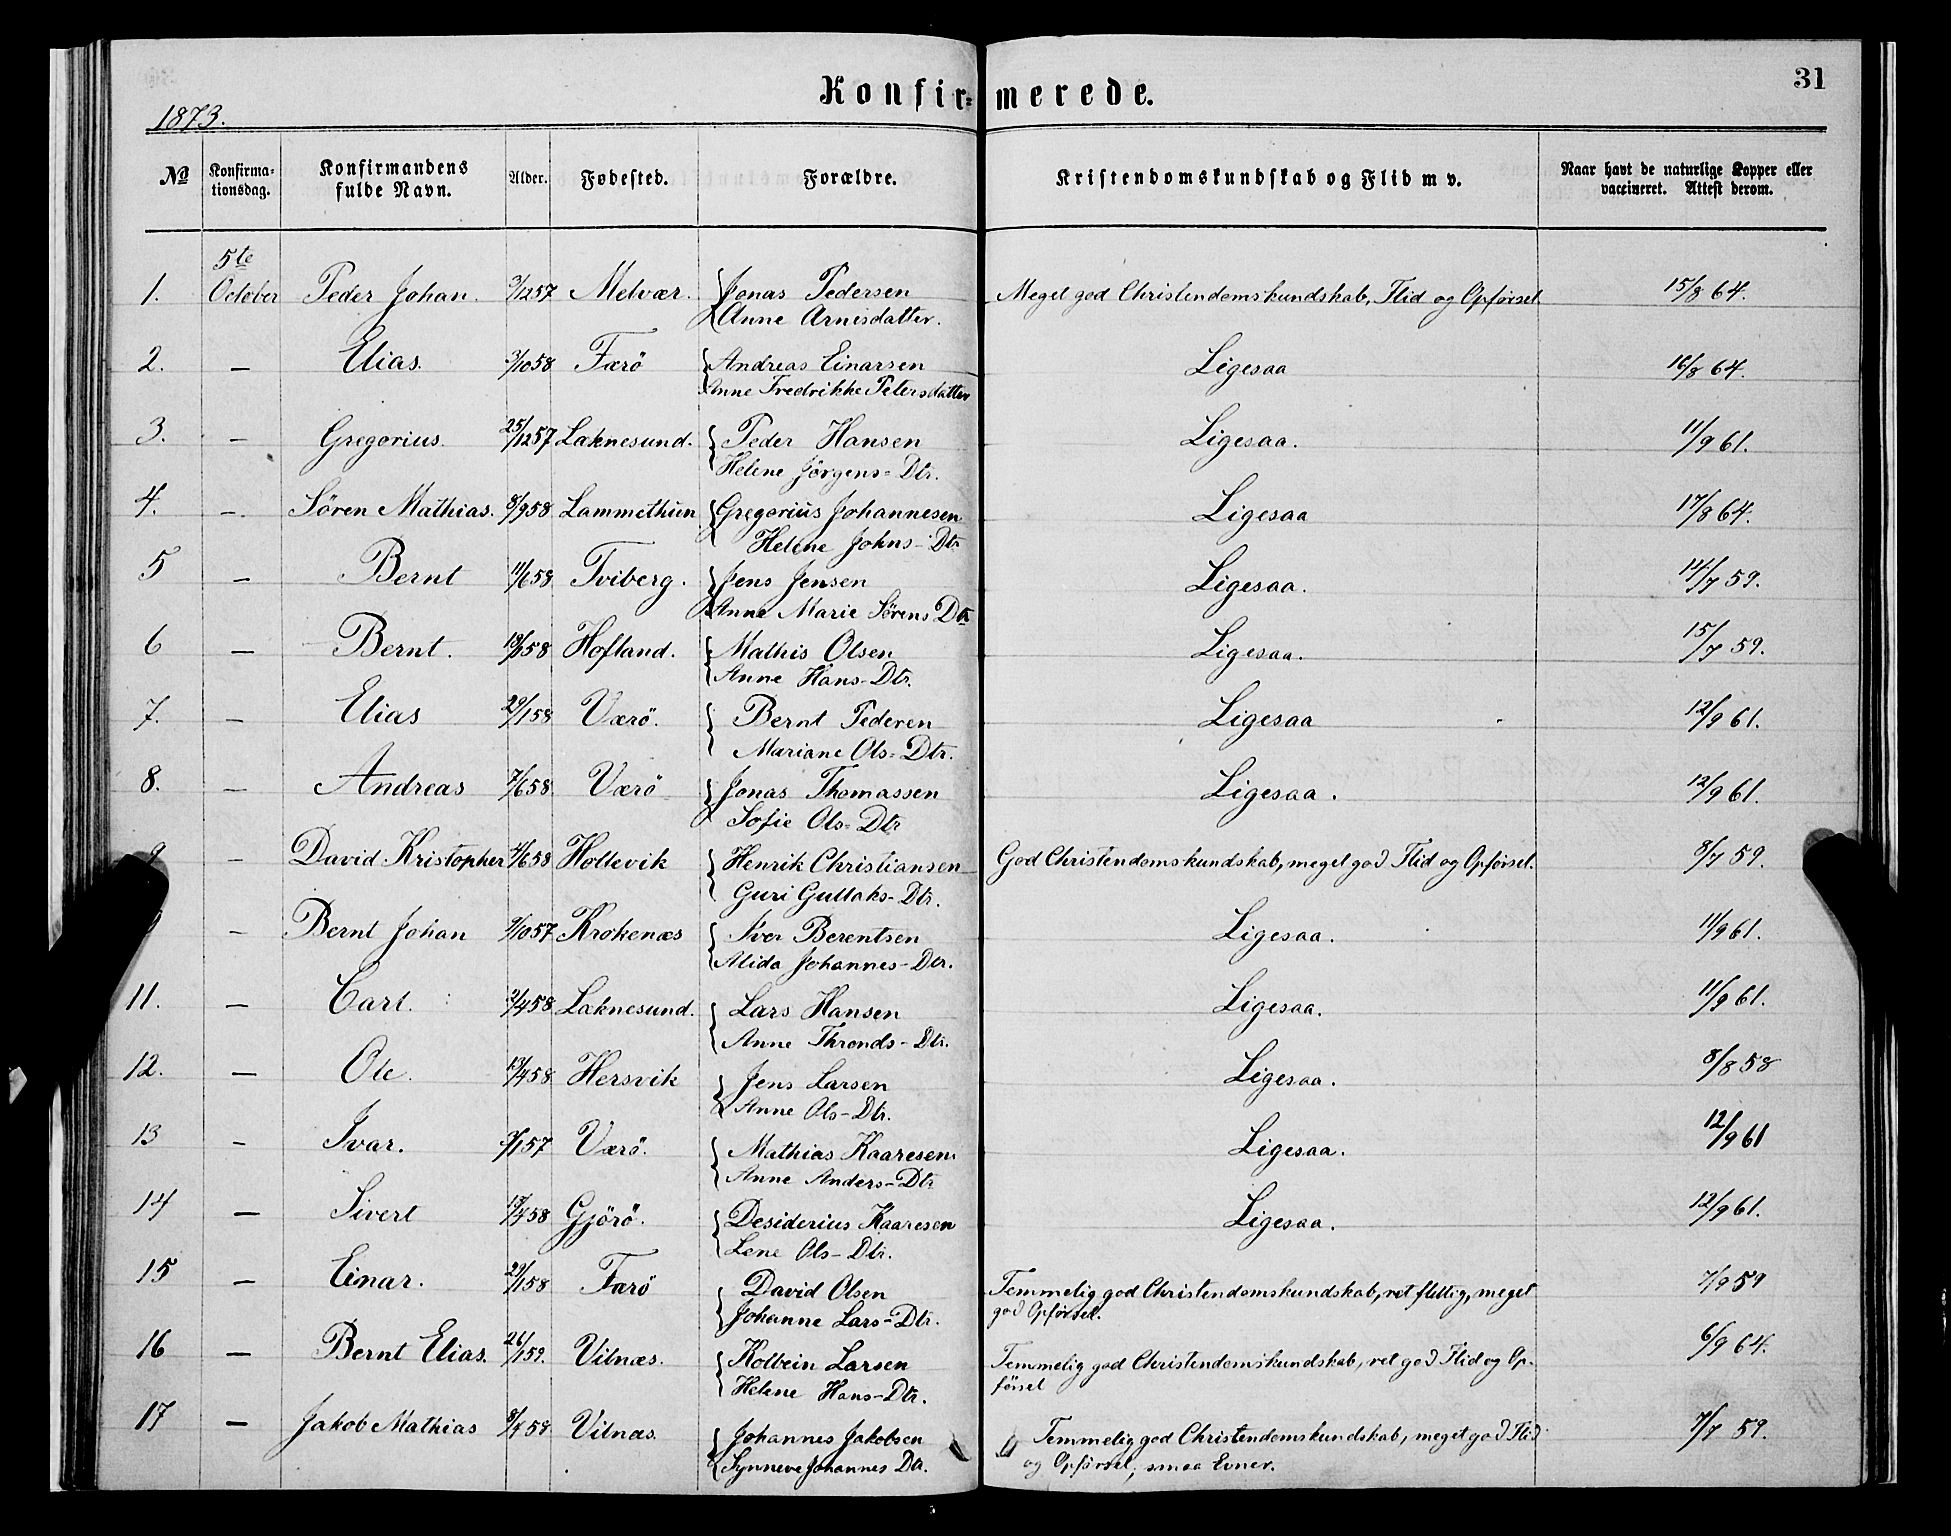 Konfirmerede.
31
1873.
No
Konfirma-
tionsdag.
Konfirmandens
fulde Navn.
Alder.
Fødested.
Forældre.
Kristendomskundskab og Flid m v.
Naar havt de naturlige Kopper eller
vaccineret. Attest derom.
5te
1. October Peder Johan. 3/12 57 Melvær. Jonas Pedersen Meget god Christendomskundskab, Flid og Opførsel 15/8 64.
Anne Arnisdatter.
2. — Elias. 3/10 58 Færö Andreas Einarsen Ligesaa 16/8 64.
Anne Fredrikke Petersdatter
3. — Gregorius. 25/12 57 Laknesund. Peder Hansen Ligesaa. 11/9 61.
Helene Jörgens-Dtr.
4. — Sören Mathias. 8/9 58 Lammethun Gregorius Johannesen Ligesaa 17/8 64.
Helene Johns-Dtr
5 — Bernt 11/6 58 Tviberg. Jens Jensen Ligesaa. 14/7 59.
Anne Marie Sörens Dtr
6 — Bernt. 58 Hofland. Mathis Olsen Ligesaa. 15/7 59.
Anne Hans-Dtr.
7. — Elias 29/1 58 Værö. Bernt Pederen Ligesaa 12/9 61.
Mariane Ols-Dtr.
8. — Andreas 7/6 58 Værö Jonas Thomassen Ligesaa. 12/9 61.
Sofie Ols-Dtr
9 — David Kristopher 4/6 58 Holtevik Henrik Christiansen God Christendomskundskab, meget god Flid og Opførsel. 8/7 59.
Guri Gullaks-Dtr.
— Bernt Johan 9/10 57 Krokenæs Iver Berentsen Ligesaa. 11/9 61.
Alida Johannes-Dtr.
11. — Carl. 2/4 58 Laknesund. Lars Hansen Ligesaa. 11/9 61.
Anne Thronds-Dtr.
12. — Ole. 13/4 58 Hersvik Jens Larsen Ligesaa. 8/8 58
Anne Ols-Dtr.
13 — Ivar. 57 Værö. Mathias Kaaresen Ligesaa. 12/9 61
Anne Anders-Dtr
14 — Sivert 58 Gjörö. Desiderius Kaaresen Ligesaa. 12/9 61.
Lene Ols-Dtr.
15 — Einar. 29/1 58 Færö David Olsen Temmelig god Christendomskundskab, ret flittig, meget 7/9 59
Johanne Lars-Dtr. god Opførsel.
16 — Bernt Elias. 26/1 59. Vilnæs. Kolbein Larsen Temmelig god Christendomskundskab, ret god Flid og Op- 6/9 64.
Helene Hans-Dtr. førsel
17 — Jakob Mathias 8/4 58 Vilnæs. Johannes Jakobsen Temmelig god Christendomskundskab, meget god Flid 7/7 59.
Synneve Johannes Dtr. og Opførsel, smaa Evner.